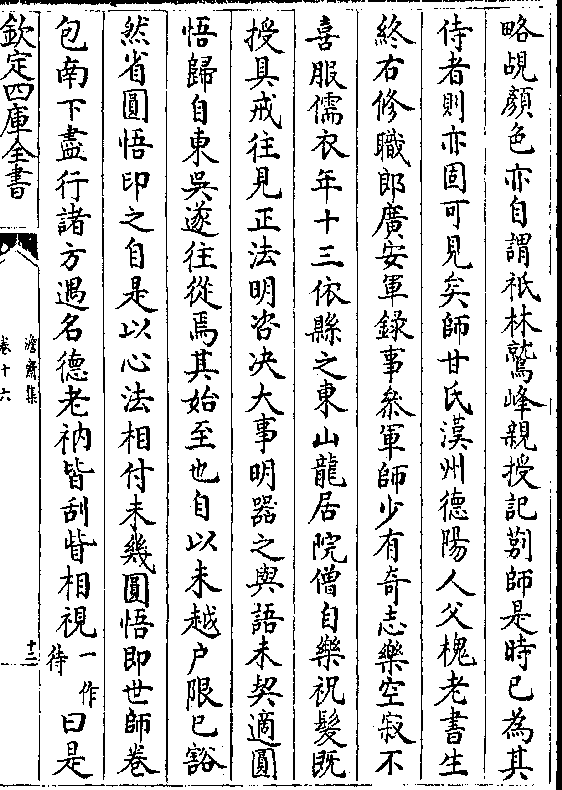 略覘顏色亦自謂祇林鷲峰親授記莂師是時已為其
侍者則亦固可見矣師甘氏漢州德陽人父槐老書生
終右修職郎廣安軍錄事叅軍師少有奇志樂空寂不
喜服儒衣年十三依縣之東山龍居院僧自樂祝髮既
授具戒往見正法明咨決大事明器之與語未契適圓
悟歸自東吳遂往從焉其始至也自以未越户限已豁
然省圓悟印之自是以心法相付未幾圓悟即世師卷
包南下盡行諸方遇名德老衲皆刮眥相視一作待曰是
欽定四庫全書
澹齋集
卷十六
十三